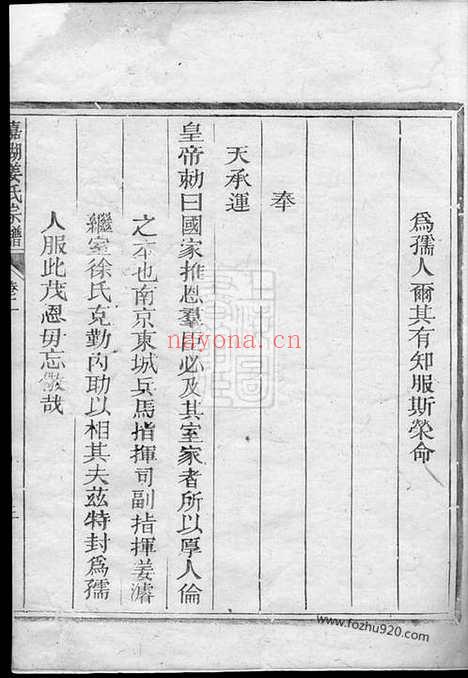 為孺人爾其有知服斯榮命
奉
天承運
皇帝勑曰國家推恩羣臣必及其室家者所以厚人倫
之本也南京東城兵馬指揮司副指揮姜濬
繼室徐氏克勤內助以相其夫茲特封為孺
人服此茂恩毋忘儆哉
姜氏宗譜
nayona.cn
www.fozhu920.com